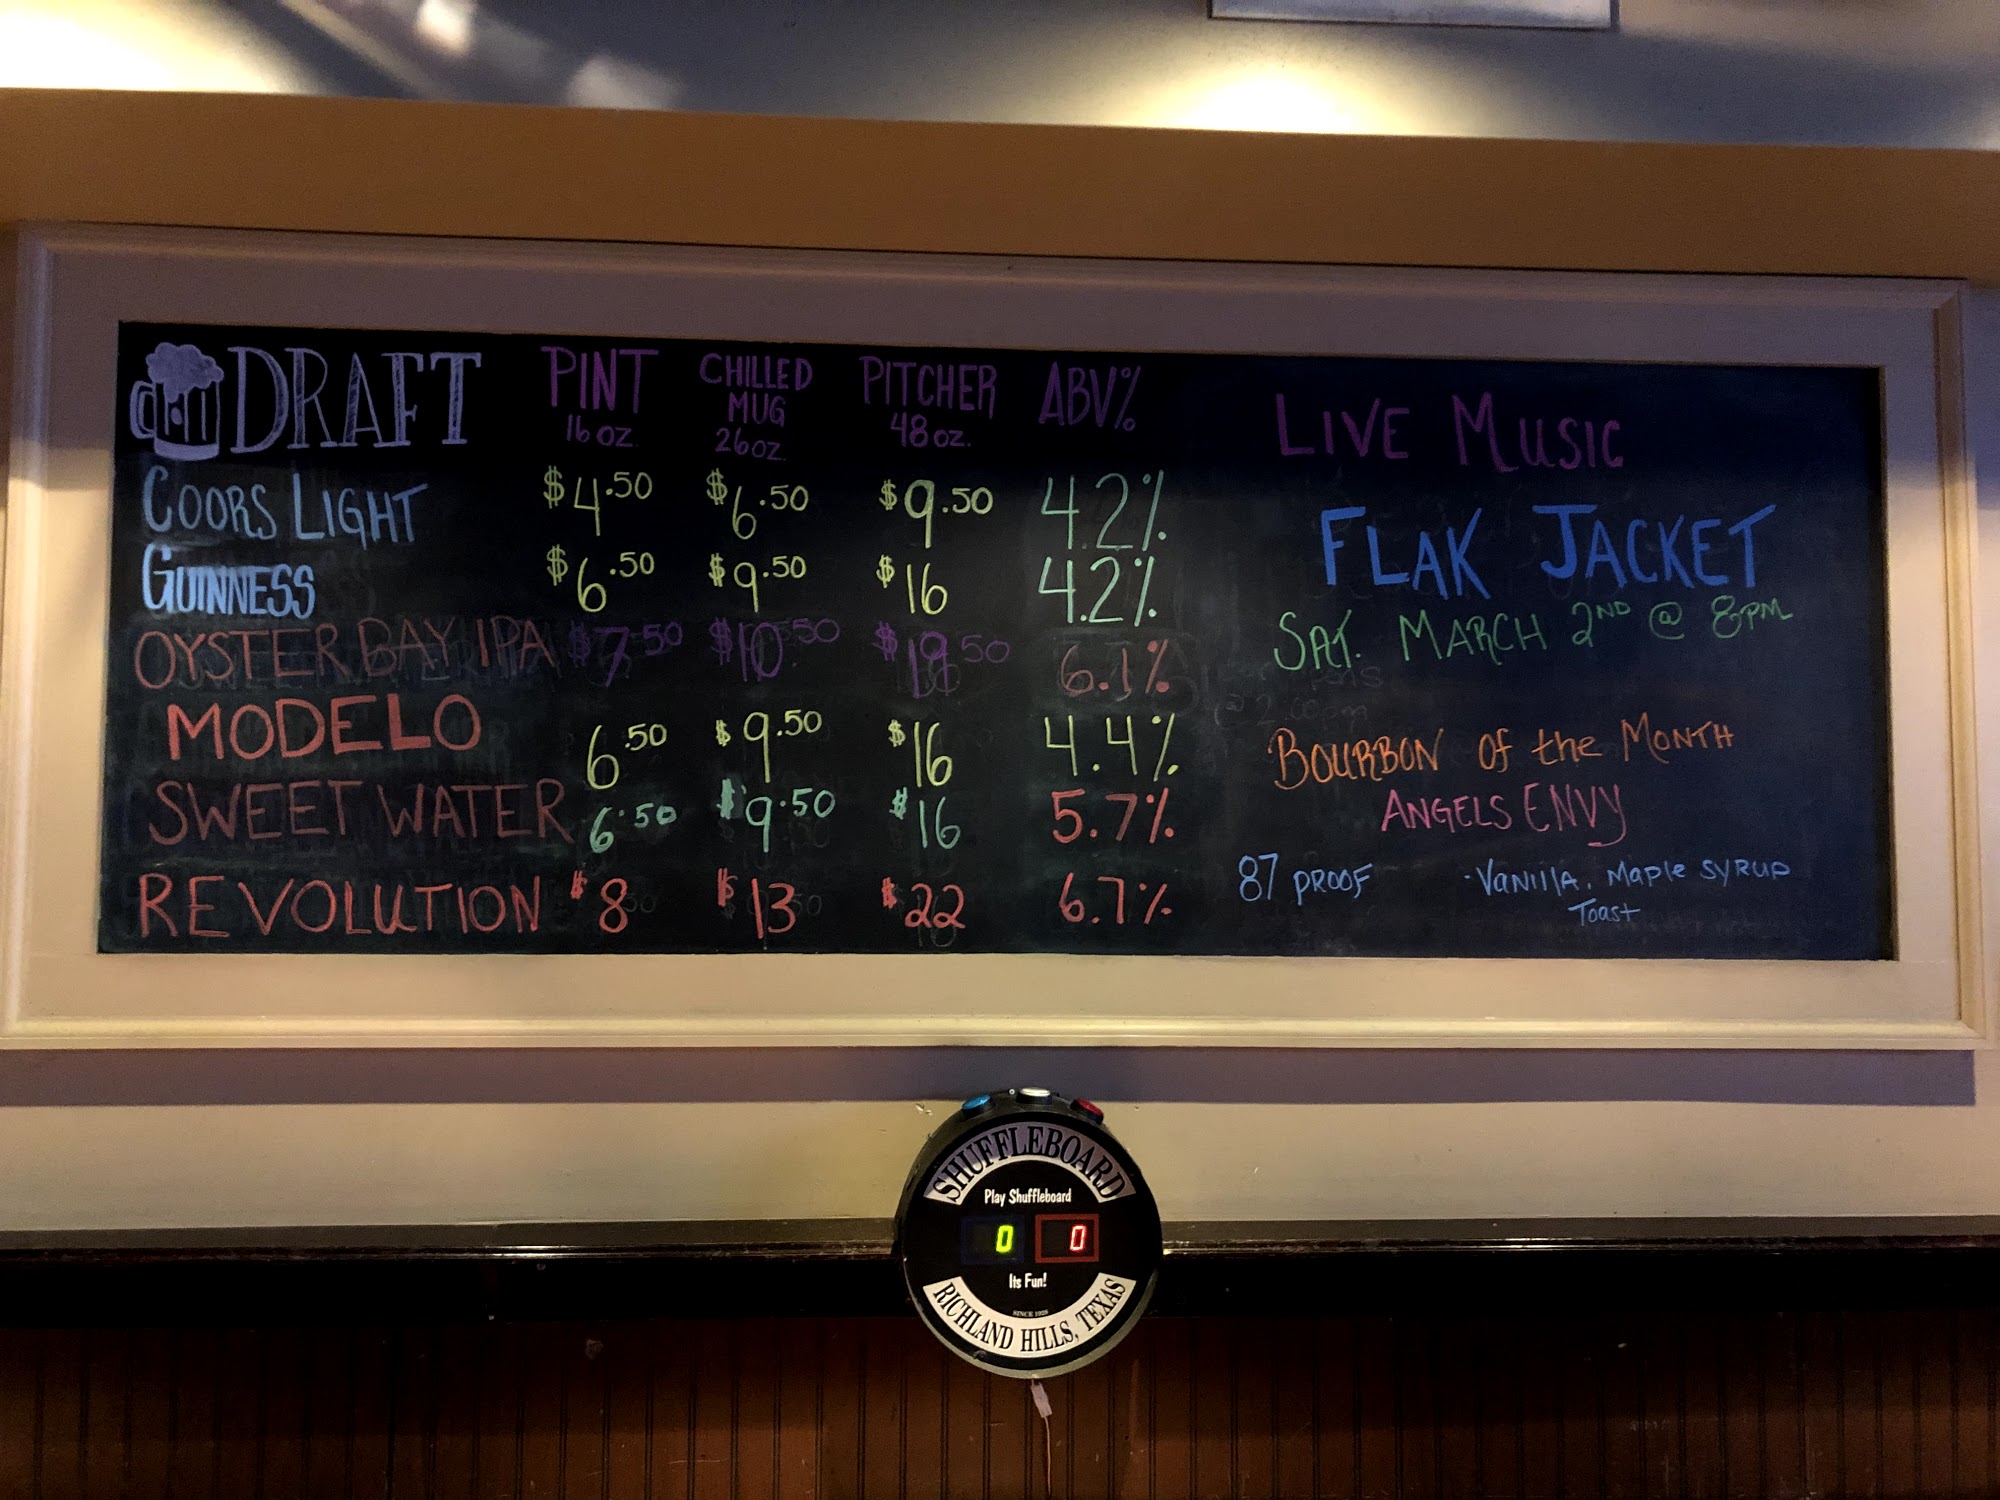 DRAFT PINT 16 oz. CHILLED MUG 26oz PITCHER 48 oz. ABV%
COORS LIGHT $4.50 $6.50 $9.50 4.2%
GUINNESS $6.50 $9.50 $16 4.2%
OYSTER BAY IPA $7.50 $10.50 $19.50 6.1%
MODELO 6.50 $9.50 $16 4.4%
SWEET WATER 6.50 $9.50 $16 5.7%
REVOLUTION $8 $13 $22 6.7%
LIVE MUSIC
FLAK JACKET
SAT. MARCH 2ND @ 8PM
BOURBON of the MONTH
ANGELS ENVY
87 PROOF -VANIllA, MAPle SYRUP
Toast
SHUFFLEBOARD
Play Shuffleboard
0 0
Its Fun!
SINCE 1928
RICHLAND HILLS, TEXAS